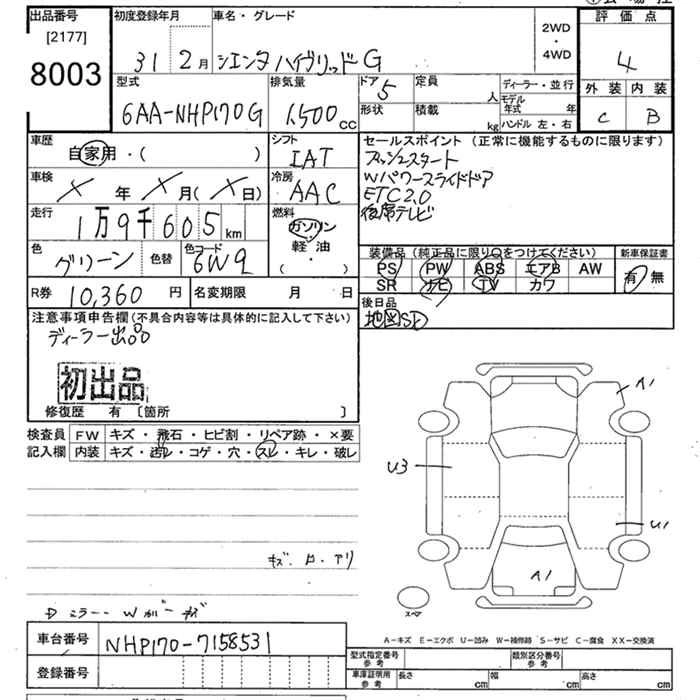 出品番号 初度登録年月 車名・グレード 評価点
[2177]
8003
31 2月 シエンタ ハイブリッドG 2WD・4WD 4
型式 排気量 ドア 5 定員 人 ディーラー・並行 外装 内装
6AA-NHP170G 1500cc 形状 積載 kg モデル年式 年 C B
ハンドル 左・右
車歴 シフト セールスポイント (正常に機能するものに限ります)
自家用・( ) IAT プッシュスタート
車検 冷房 Wパワースライドドア
X 年 X 月( X 日) AAC ETC2.0
走行 燃料 後席テレビ
1万9千605km ガソリン・軽油・( )
色 グリーン 色替 色コード 6W9
装備品 (純正品に限り○をつけてください) 新車保証書
PS PW ABS エアB AW 有・無
SR ナビ TV カワ
R券 10,360円 名変期限 月 日
後日品
地図SD
注意事項申告欄(不具合内容等は具体的に記入して下さい)
ディーラー出品
初出品
修復歴 有 〔箇所 〕
検査員記入欄 FW キズ・飛石・ヒビ割・リペア跡・×要
内装 キズ・汚レ・コゲ・穴・スレ・キレ・破レ
A1
U3
U1
A1
スペア
A-キズ E-エクボ U-凹み W-補修跡 S-サビ C-腐食 XX-交換済
車台番号 NHP170-7158531
登録番号
型式指定番号 参考 類別区分番号 参考
車庫証明用 参考 長さ cm 幅 cm 高さ cm